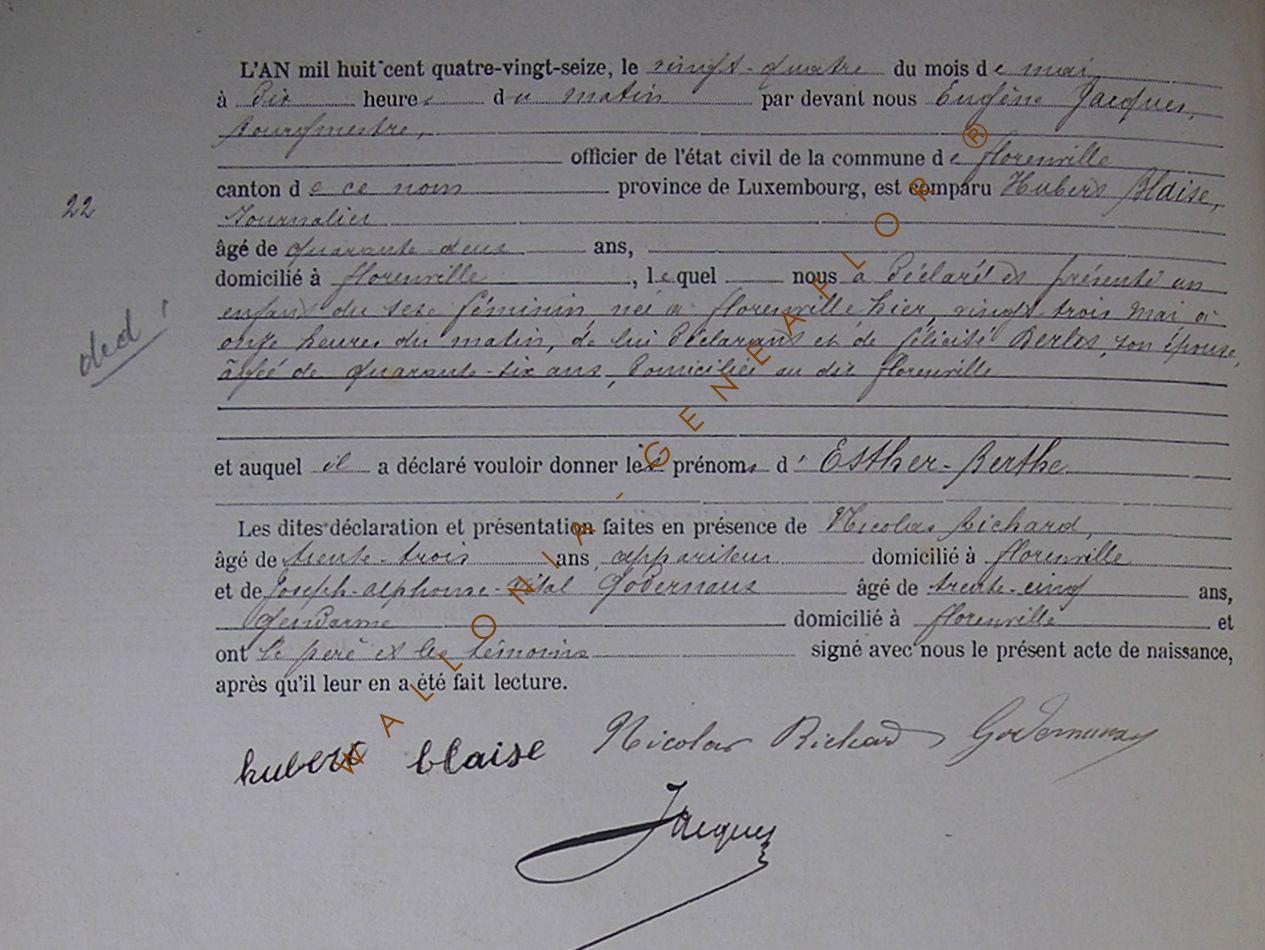 L'AN mil huit cent quatre-vingt-seize, le vingt-quatre du mois de mai
à dix heures du matin par devant nous Eugène Jacques,
Bourgmestre,
officier de l'état civil de la commune de florenville
canton de ce nom province de Luxembourg, est comparu Hubert Blaise,
Journalier
22
âgé de quarante-deux ans,
domicilié à florenville, lequel nous a déclaré et présenté un
enfant du sexe féminin, née à florenville hier, vingt trois mai à
onze heures du matin, de lui déclarant et de félicité Berlet, son épouse,
ded !
âgée de quarante-six ans, domiciliée au dit florenville
et auquel il a déclaré vouloir donner les prénoms d' Esther-Berthe
Les dites déclaration et présentation faites en présence de Nicolas Richard,
âgé de trente-trois ans, appariteur domicilié à florenville
et de Joseph-alphonse-Vital Godernaux âgé de trente-cinq ans,
Gendarme domicilié à florenville et
ont le père et les témoins signé avec nous le présent acte de naissance,
après qu'il leur en a été fait lecture.
hubert blaise Nicolas Richard Godernaux
Jacques
WALLONIA - GENEAFLOR ®